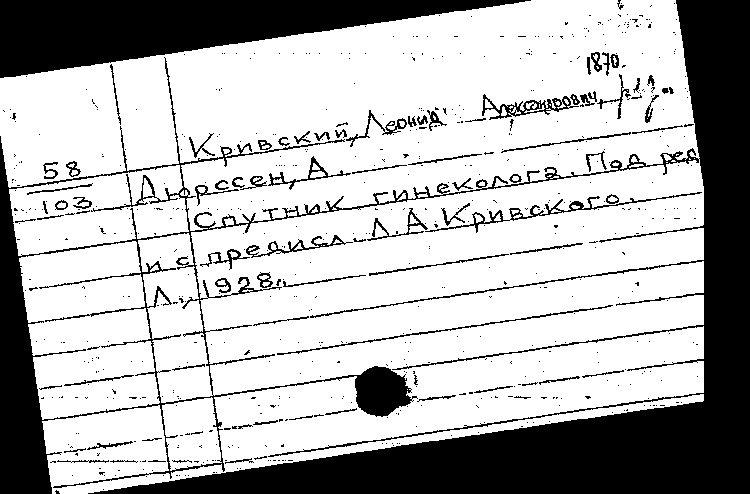 1870.
Кривский, Леонид Александрович,
58
103
Дюрссен, А.
Спутник гинеколога. Под ред
и с предисл. Л. А. Кривского.
Л., 1928.